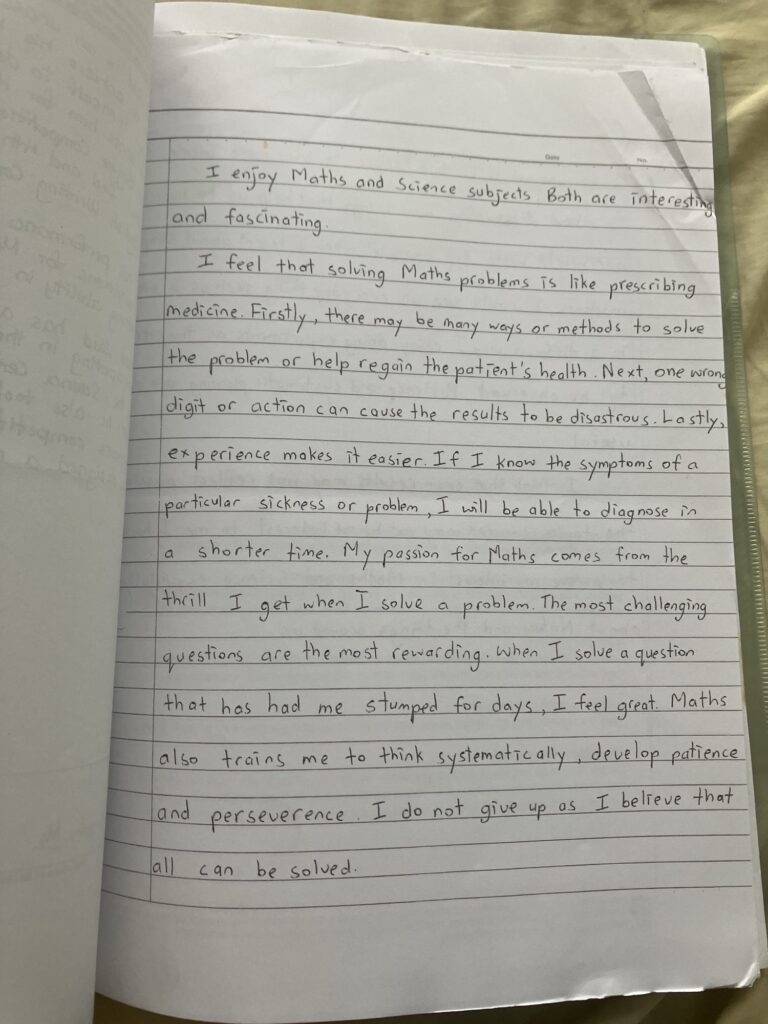 Date No.
I enjoy Maths and Science subjects. Both are interesting
and fascinating.
I feel that solving Maths problems is like prescribing
medicine. Firstly, there may be many ways or methods to solve
the problem or help regain the patient's health. Next, one wrong
digit or action can cause the results to be disastrous. Lastly,
experience makes it easier. If I know the symptoms of a
particular sickness or problem, I will be able to diagnose in
a shorter time. My passion for Maths comes from the
thrill I get when I solve a problem. The most challenging
questions are the most rewarding. When I solve a question
that has had me stumped for days, I feel great. Maths
also trains me to think systematically, develop patience
and perseverence. I do not give up as I believe that
all can be solved.